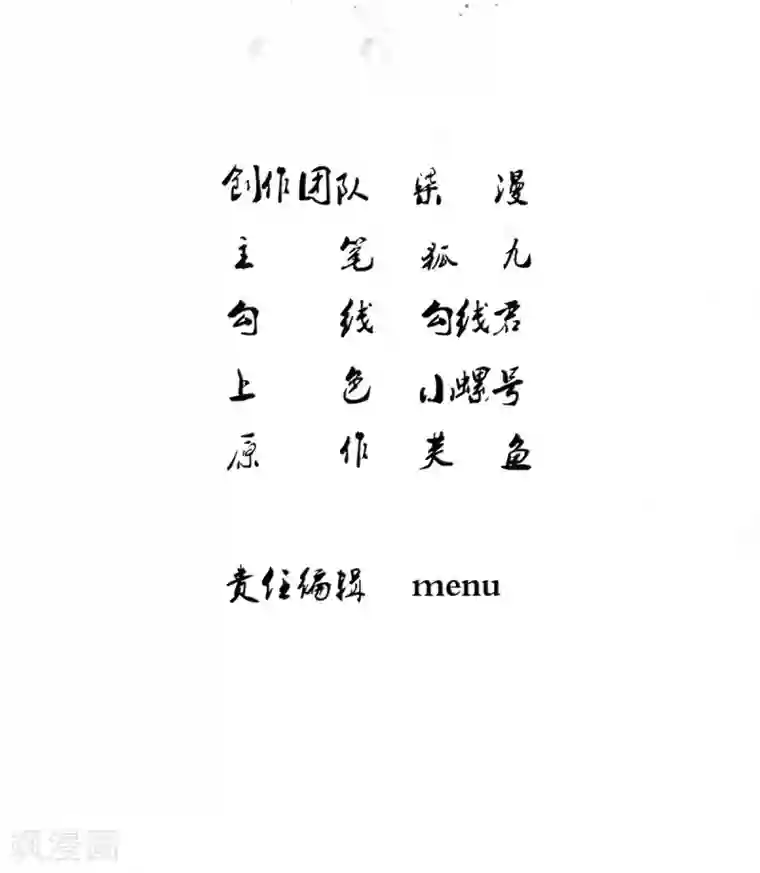 创作团队 柒 漫
主 笔 狐 九
勾 线 勾线君
上 色 小螺号
原 作 芙 鱼
责任编辑 menu
飒漫画